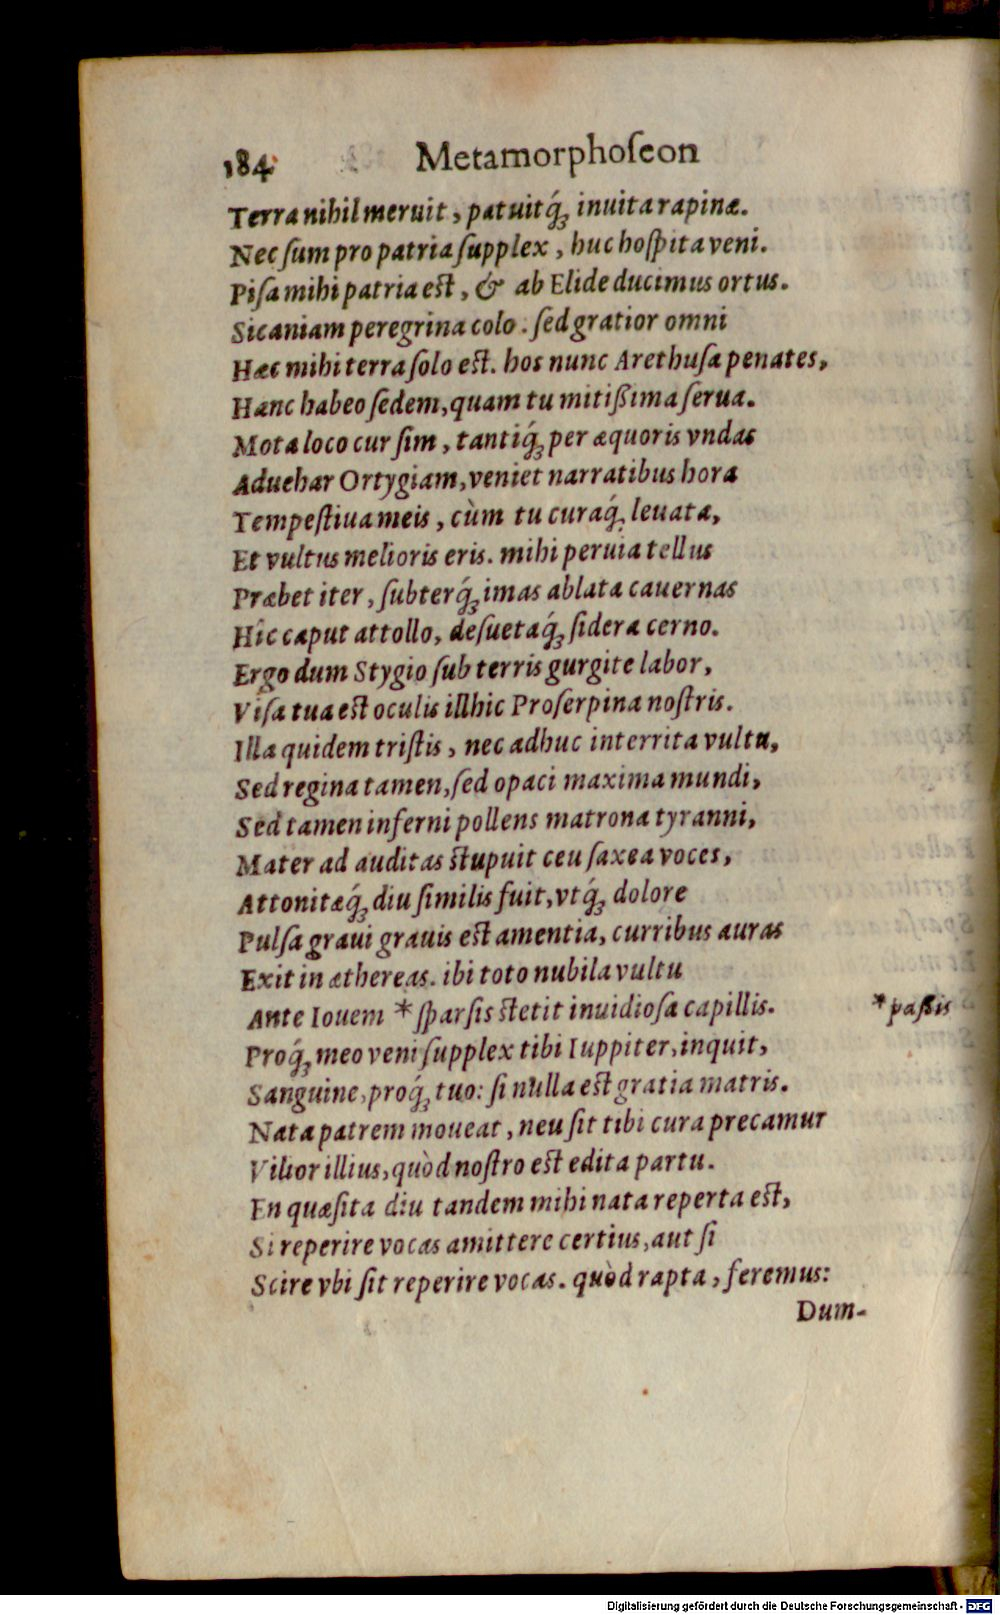 184 Metamorphoſeon
Terra nihil meruit, patuitq́; inuita rapinæ.
Nec ſum pro patria ſupplex, huc hoſpita veni.
Piſa mihi patria eſt, & ab Elide ducimus ortus.
Sicaniam peregrina colo. ſed gratior omni
Hæc mihi terra ſolo eſt. hos nunc Arethuſa penates,
Hanc habeo ſedem, quam tu mitißima ſerua.
Mota loco cur ſim, tantiq́; per æquoris vndas
Aduehar Ortygiam, veniet narratibus hora
Tempeſtiua meis, cùm tu curaq́; leuata,
Et vultus melioris eris. mihi peruia tellus
Præbet iter, ſubterq́; imas ablata cauernas
Hîc caput attollo, deſuetaq́; ſidera cerno.
Ergo dum Stygio ſub terris gurgite labor,
Viſa tua eſt oculis illhic Proſerpina noſtris.
Illa quidem triſtis, nec adhuc interrita vultu,
Sed regina tamen, ſed opaci maxima mundi,
Sed tamen inferni pollens matrona tyranni,
Mater ad auditas ſtupuit ceu ſaxea voces,
Attonitæq́; diu ſimilis fuit, vtq́; dolore
Pulſa graui grauis eſt amentia, curribus auras
Exit in æthereas. ibi toto nubila vultu
Ante Iouem *ſparſis ſtetit inuidioſa capillis. *paßis
Proq́; meo veni ſupplex tibi Iuppiter, inquit,
Sanguine, proq́; tuo: ſi nulla eſt gratia matris.
Nata patrem moueat, neu ſit tibi cura precamur
Vilior illius, quòd noſtro eſt edita partu.
En quæſita diu tandem mihi nata reperta eſt,
Si reperire vocas amittere certius, aut ſi
Scire vbi ſit reperire vocas. quòd rapta, feremus:
Dum-
Digitalisierung gefördert durch die Deutsche Forschungsgemeinschaft - DFG